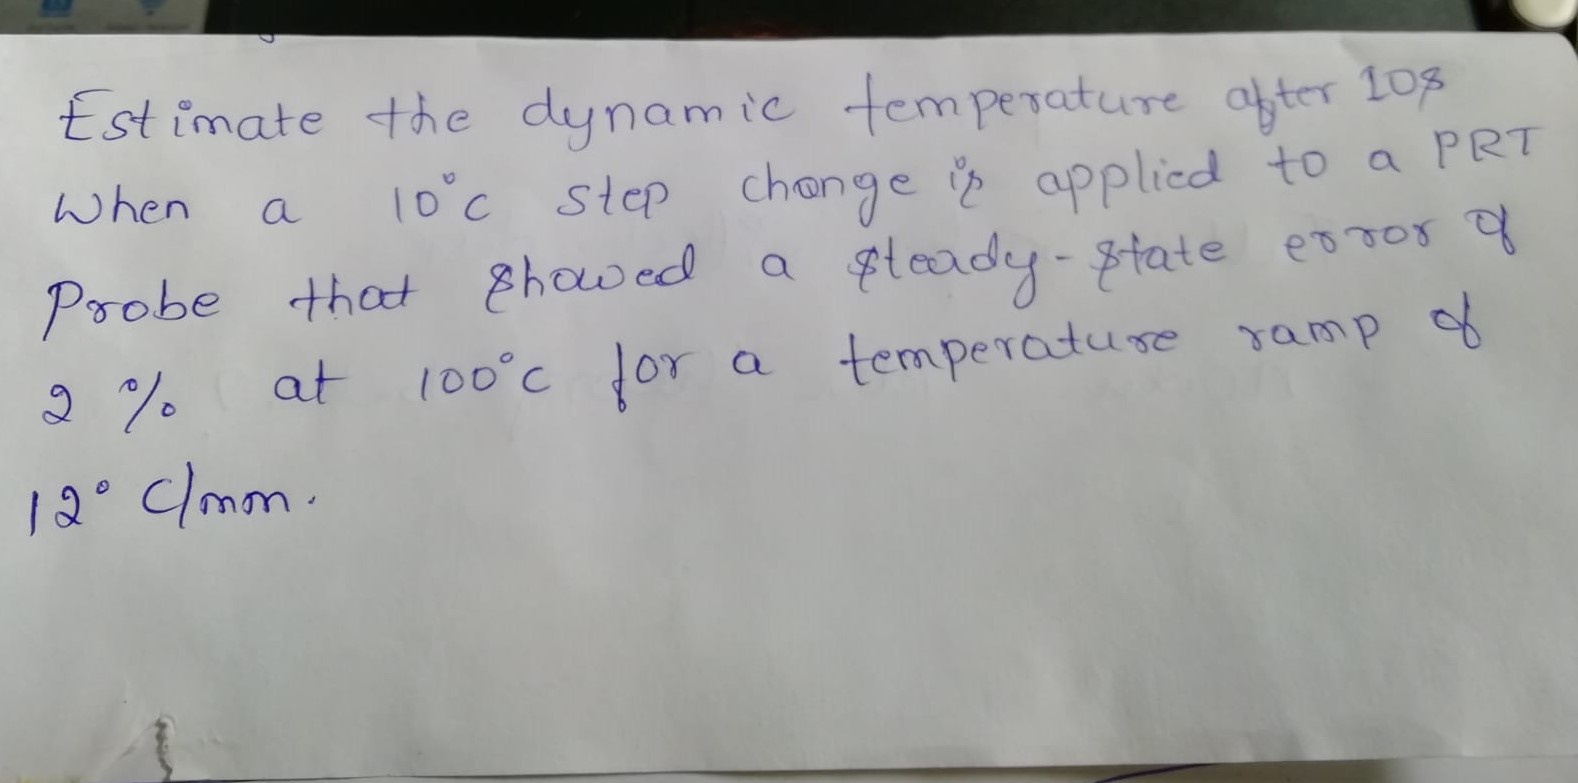 Estimate the dynamic temperature after 10s
when a 10°c step change is applied to a PRT
Probe that showed a steady-state error of
2 % at 100°c for a temperature ramp of
12° C/mm.